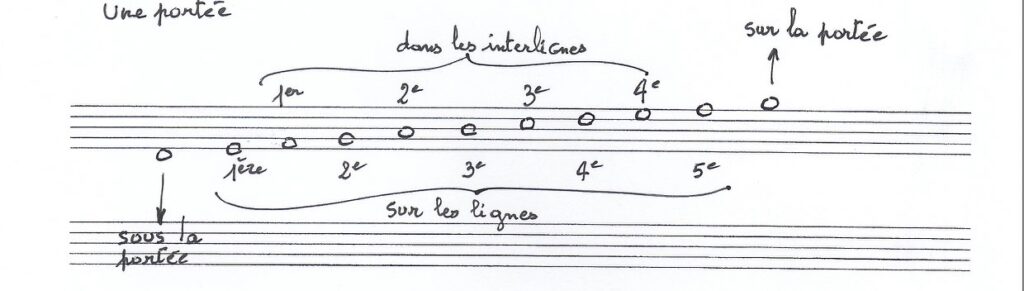 Une portée
sur la portée
dans les interlignes
1er 2e 3e 4e
1ère 2e 3e 4e 5e
sur les lignes
sous la
portée